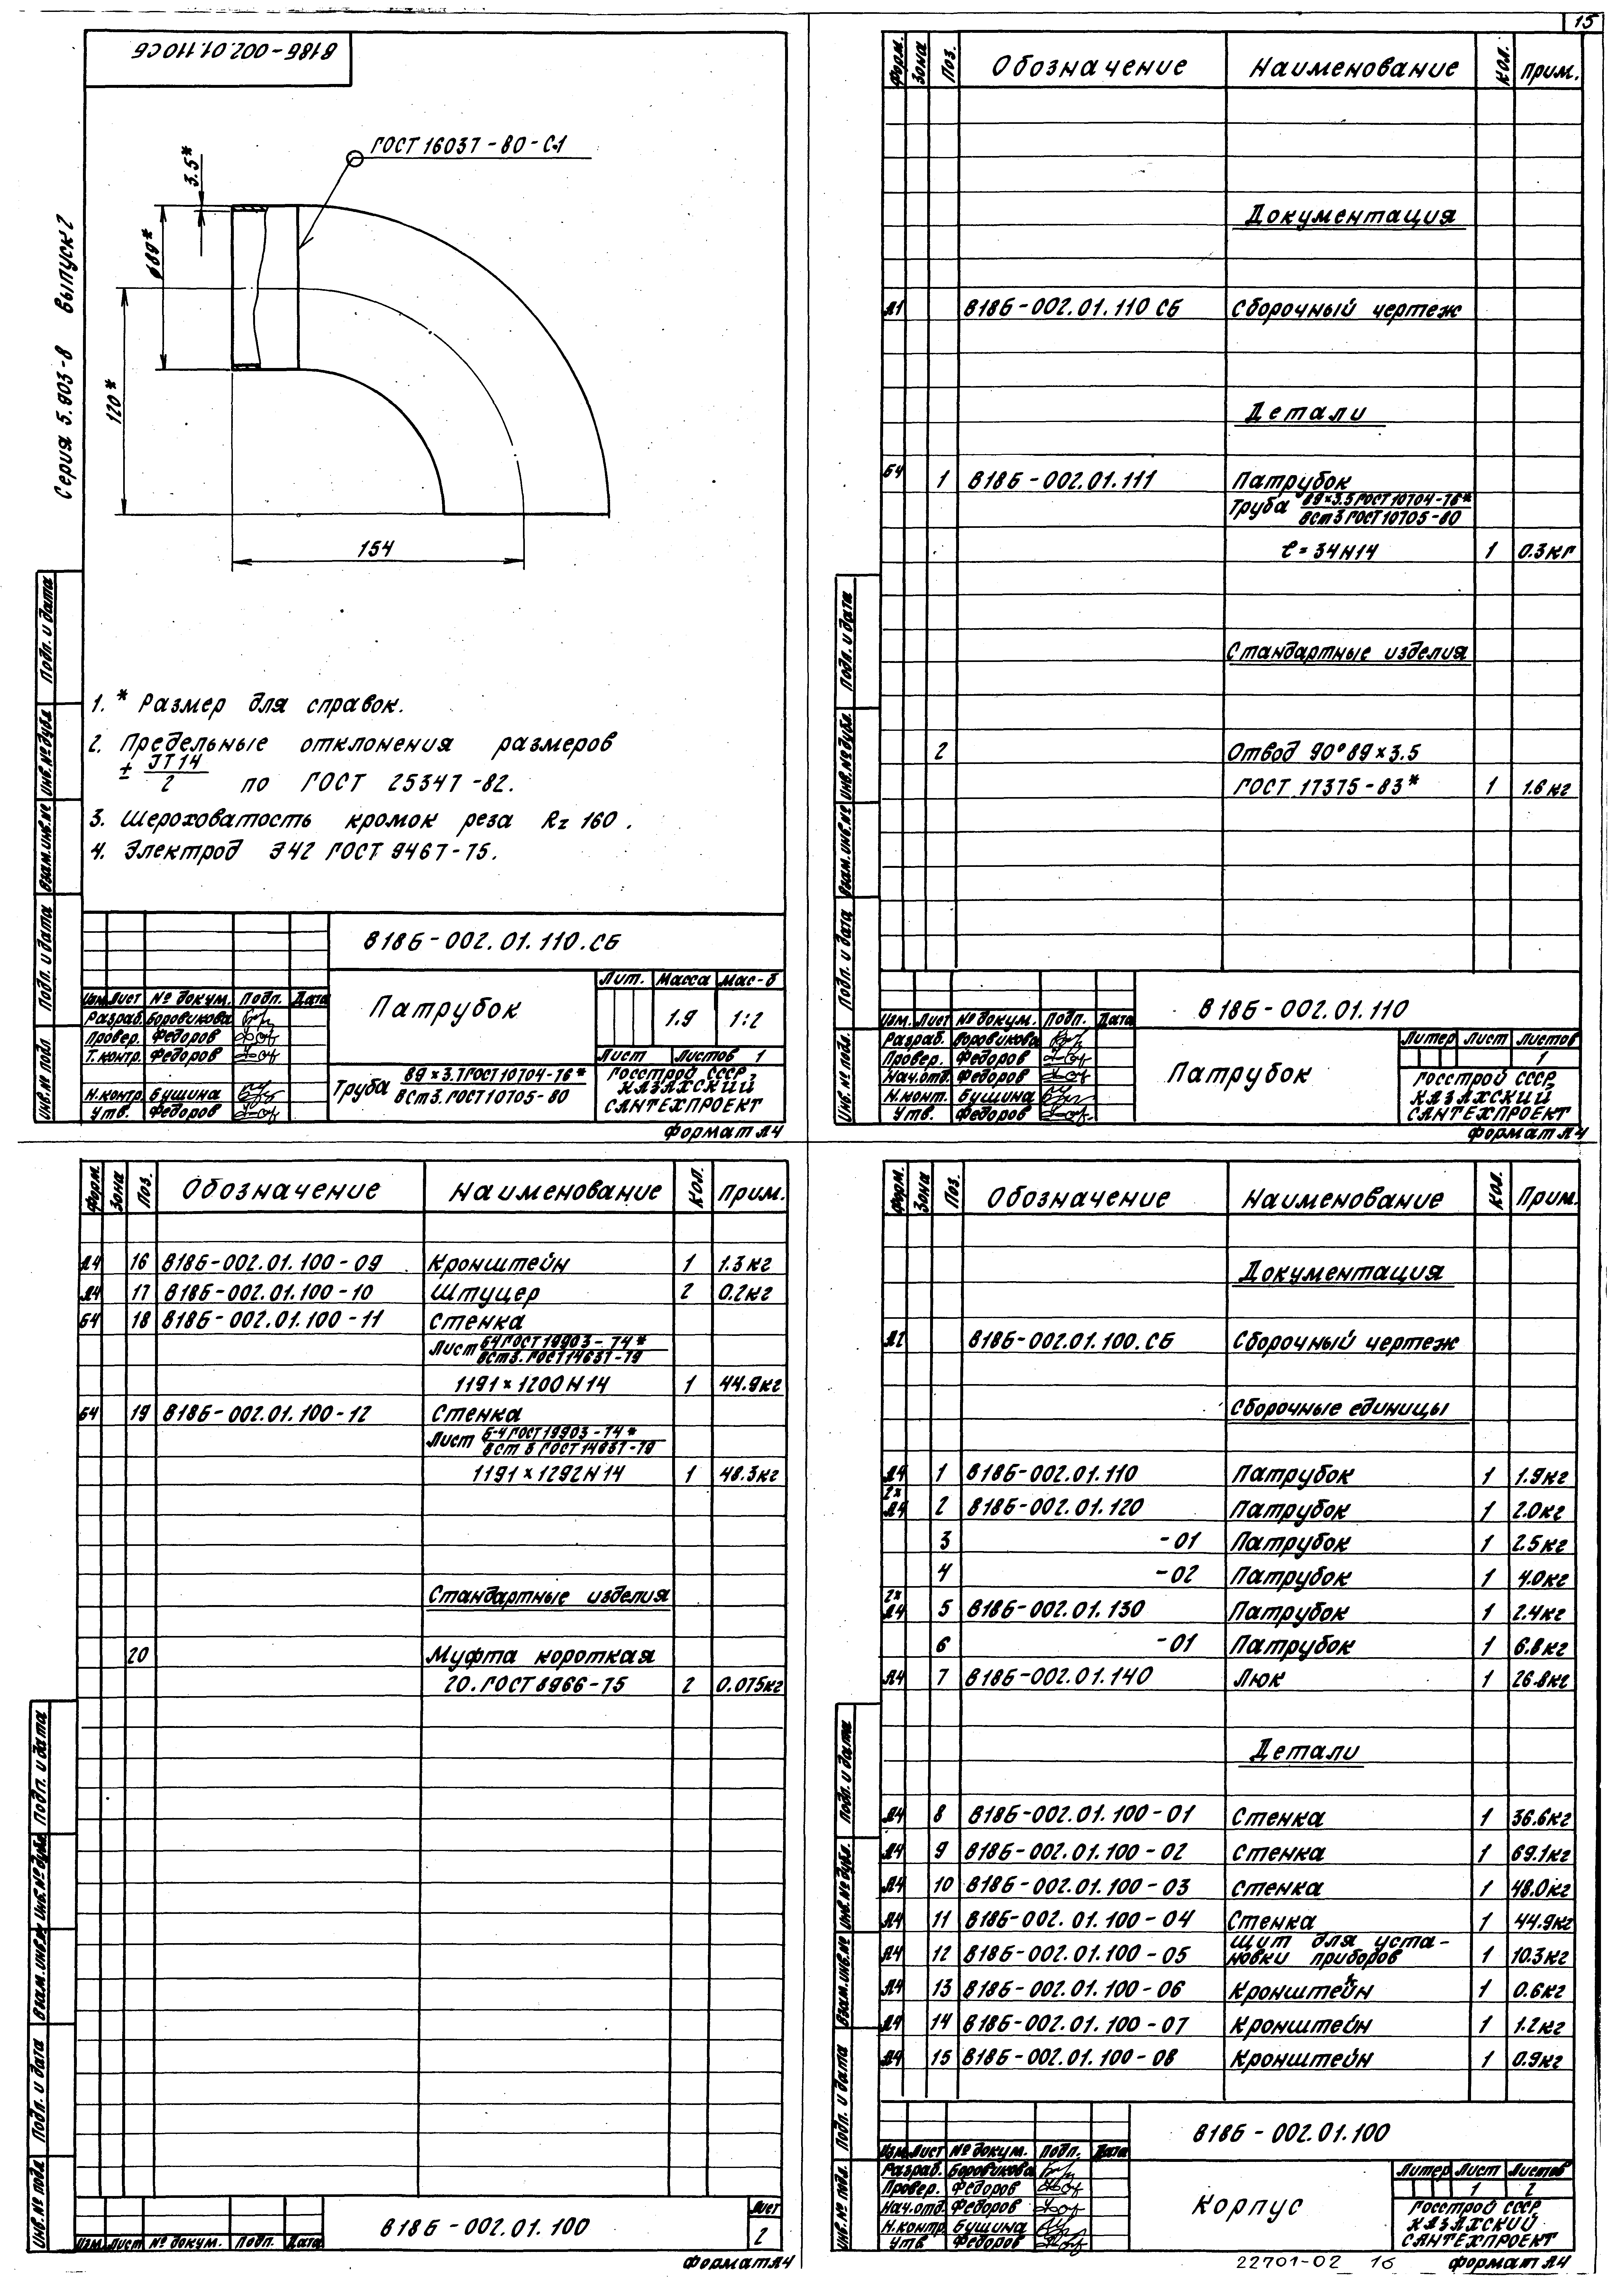 15
В18Б-002.01.110СБ
Серия 5.903-8 выпуск 2
ГОСТ 16037-80-С1
3.5*
ø89*
120*
154
1. * Размер для справок.
2. Предельные отклонения размеров
± JT14/2 по ГОСТ 25347-82.
3. Шероховатость кромок реза Rz 160.
4. Электрод Э42 ГОСТ 9467-75.
В18Б-002.01.110.СБ
Патрубок
Лит. Масса Мас-б
1.9 1:2
Лист Листов 1
Изм. Лист № докум. Подп. Дата
Разраб. Боровикова
Провер. Федоров
Т.контр. Федоров
Н.контр. Бушина
Утв. Федоров
Труба 89×3.5 ГОСТ 10704-76* / Вст3.ГОСТ10705-80
Госстрой СССР
КАЗАХСКИЙ
САНТЕХПРОЕКТ
Формат А4
Инв.№ подл Подп. и дата Взам.инв.№ Инв.№ дубл. Подп. и дата
Форм. Зона Поз. Обозначение Наименование Кол. Прим.
Документация
А1 В18Б-002.01.110 СБ Сборочный чертеж
Детали
Б4 1 В18Б-002.01.111 Патрубок
Труба 89×3.5 ГОСТ 10704-76* / Вст3 ГОСТ 10705-80
ℓ=34Н14 1 0.3кг
Стандартные изделия
2 Отвод 90° 89×3.5
ГОСТ 17375-83* 1 1.6кг
В18Б-002.01.110
Изм. Лист № докум. Подп. Дата
Разраб. Боровикова
Провер. Федоров
Нач.отд. Федоров
Н.конт. Бушина
Утв. Федоров
Патрубок
Литер Лист Листов
1
Госстрой СССР
КАЗАХСКИЙ
САНТЕХПРОЕКТ
Формат А4
Инв.№ подл. Подп. и дата Взам.инв.№ Инв.№ дубл. Подп. и дата
Форм. Зона Поз. Обозначение Наименование Кол. Прим.
А4 16 В18Б-002.01.100-09 Кронштейн 1 1.3кг
А4 17 В18Б-002.01.100-10 Штуцер 2 0.2кг
Б4 18 В18Б-002.01.100-11 Стенка
Лист Б4 ГОСТ 19903-74* / Вст3. ГОСТ 14637-79
1191×1200Н14 1 44.9кг
Б4 19 В18Б-002.01.100-12 Стенка
Лист Б-4 ГОСТ 19903-74* / Вст 3 ГОСТ 14637-79
1191×1292Н14 1 48.3кг
Стандартные изделия
20 Муфта короткая
20. ГОСТ 8966-75 2 0.075кг
Изм. Лист № докум. Подп. Дата
В18Б-002.01.100
Лист
2
Формат А4
Инв.№ подл. Подп. и дата Взам.инв.№ Инв.№ дубл. Подп. и дата
Форм. Зона Поз. Обозначение Наименование Кол. Прим.
Документация
А2 В18Б-002.01.100.СБ Сборочный чертеж
Сборочные единицы
А4 1 В18Б-002.01.110 Патрубок 1 1.9кг
2× А4 2 В18Б-002.01.120 Патрубок 1 2.0кг
3 -01 Патрубок 1 2.5кг
4 -02 Патрубок 1 4.0кг
2× А4 5 В18Б-002.01.130 Патрубок 1 2.4кг
6 -01 Патрубок 1 6.8кг
А4 7 В18Б-002.01.140 Люк 1 26.8кг
Детали
А4 8 В18Б-002.01.100-01 Стенка 1 36.6кг
А4 9 В18Б-002.01.100-02 Стенка 1 69.1кг
А4 10 В18Б-002.01.100-03 Стенка 1 48.0кг
А4 11 В18Б-002.01.100-04 Стенка 1 44.9кг
Щит для уста-
А4 12 В18Б-002.01.100-05 новки приборов 1 10.3кг
А4 13 В18Б-002.01.100-06 Кронштейн 1 0.6кг
А4 14 В18Б-002.01.100-07 Кронштейн 1 1.2кг
А4 15 В18Б-002.01.100-08 Кронштейн 1 0.9кг
В18Б-002.01.100
Изм. Лист № докум. Подп. Дата
Разраб. Боровикова
Провер. Федоров
Нач.отд. Федоров
Н.контр. Бушина
Утв Федоров
Корпус
Литер Лист Листов
1 2
Госстрой СССР
КАЗАХСКИЙ
САНТЕХПРОЕКТ
22701-02 16 Формат А4
Инв.№ подл. Подп. и дата Взам.инв.№ Инв.№ дубл. Подп. и дата